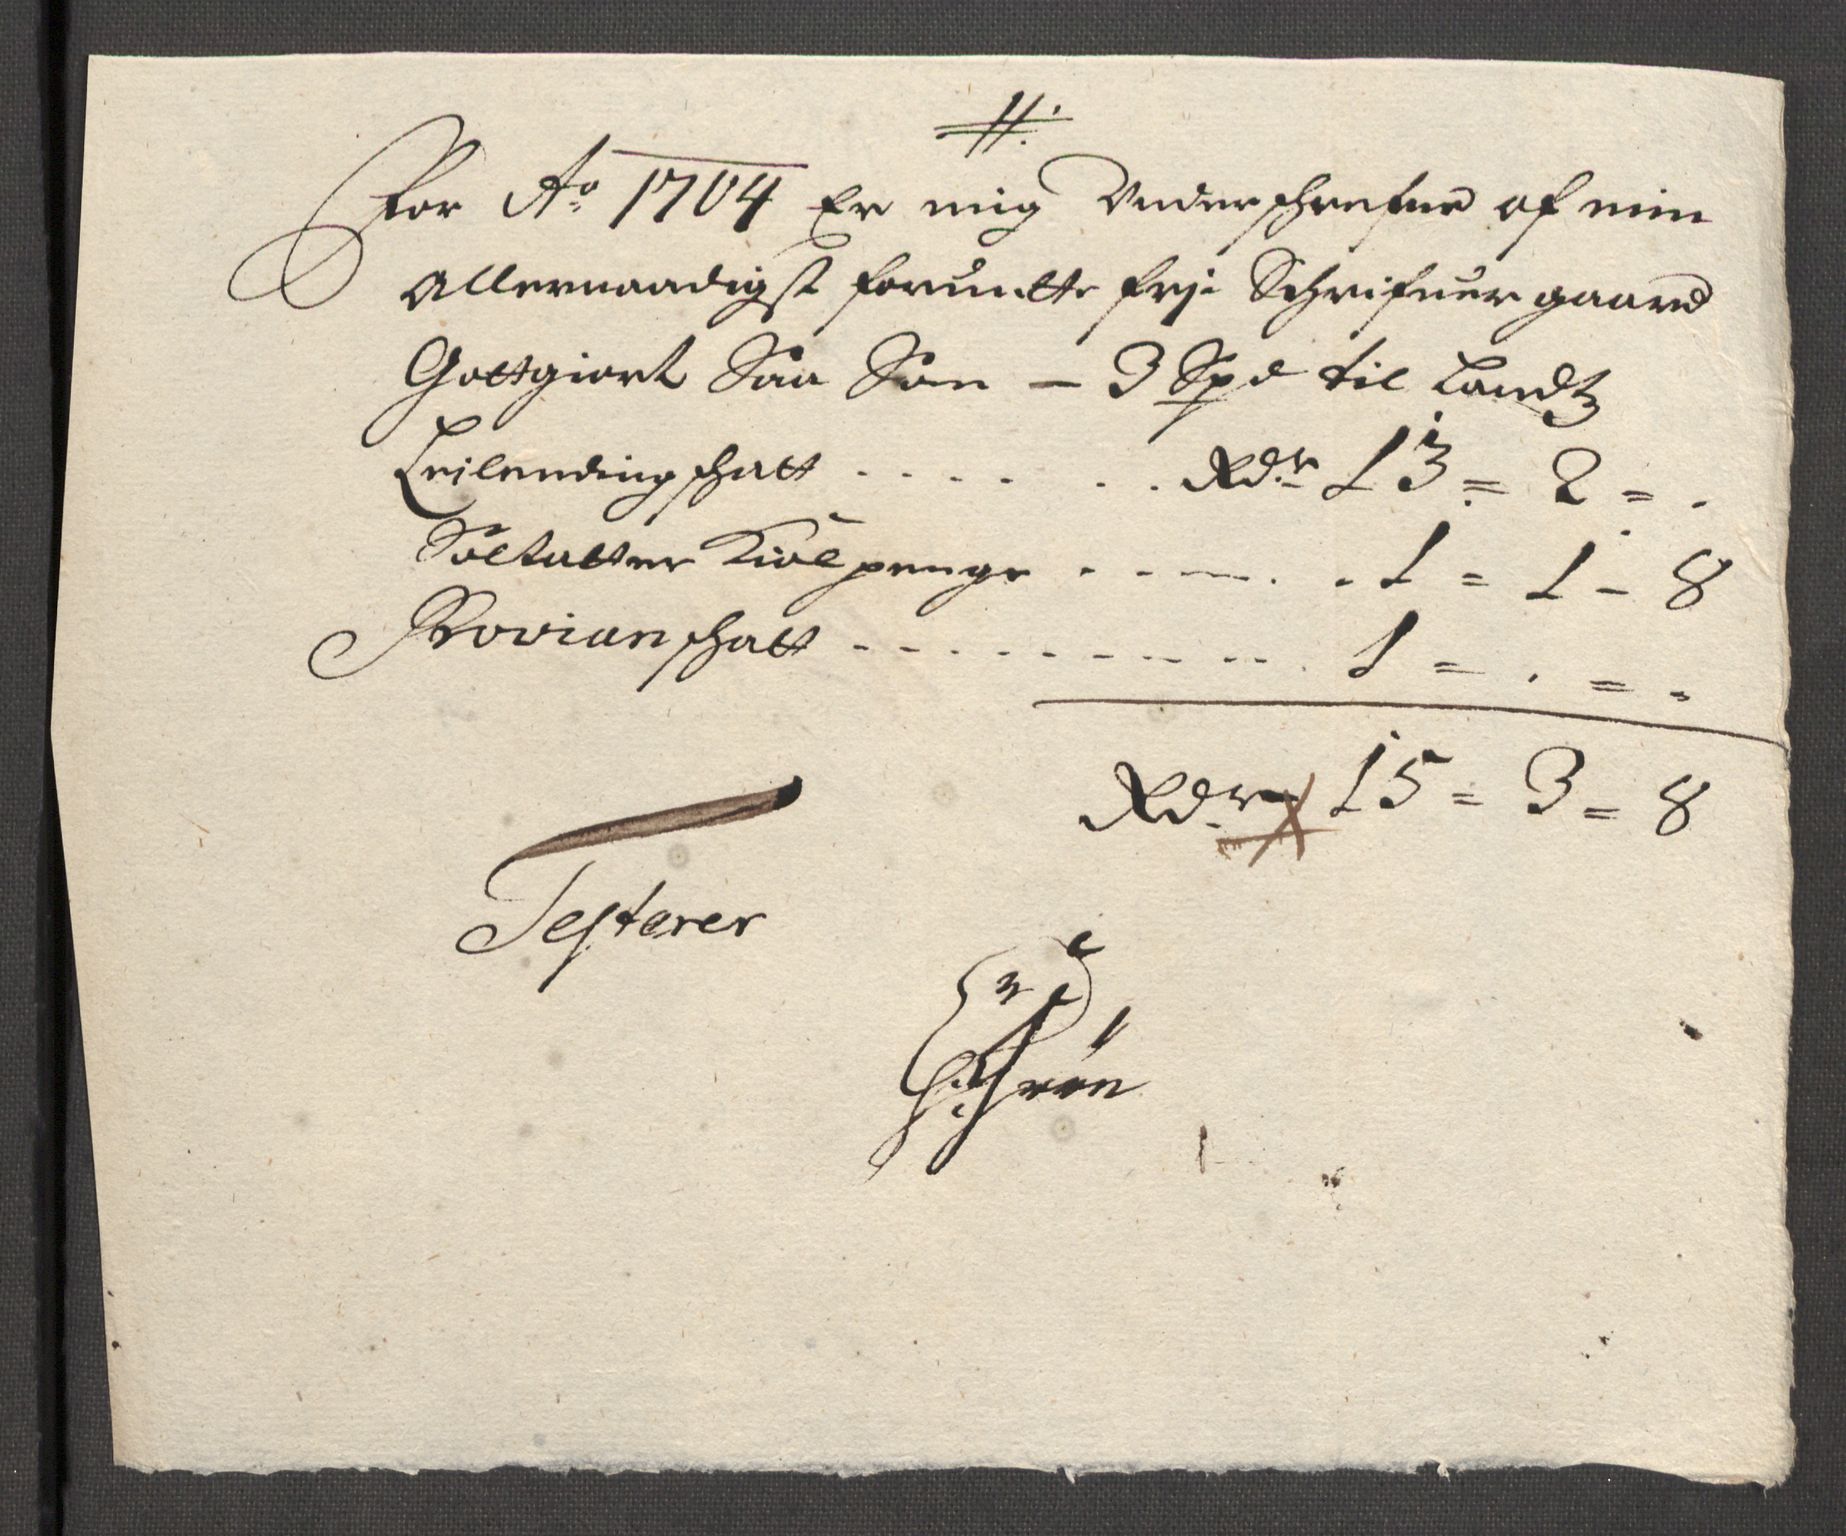 For Ao 1704 Er mig Underschrefne af min
Allernaadigst forundte frj Schrifuer gaard
Gottgiort Saa Som — 3 Spd til Landtz
Leilendingschatt . . . . . . . Rdr 13 = 2 = .
Soltatter Kiolpenge . . . . . . 1 = 1 – 8
Provianschatt . . . . . . . . . 1 = . = =
Rdr 15 = 3 = 8
Testerer